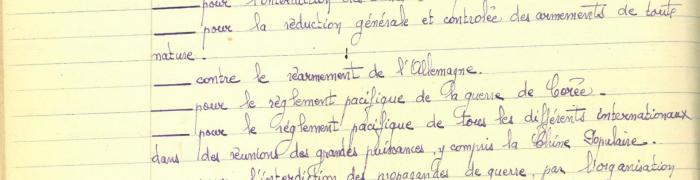 — pour l'interdiction des
— pour la réduction générale et controlée des armements de toute
nature.
— contre le réarmement de l'Allemagne.
— pour le règlement pacifique de la guerre de Corée.
— pour le règlement pacifique de tous les différents internationaux
dans des réunions des grandes puissances, y compris la Chine Populaire.
pour l'interdiction des propagandes de guerre, par l'organisation